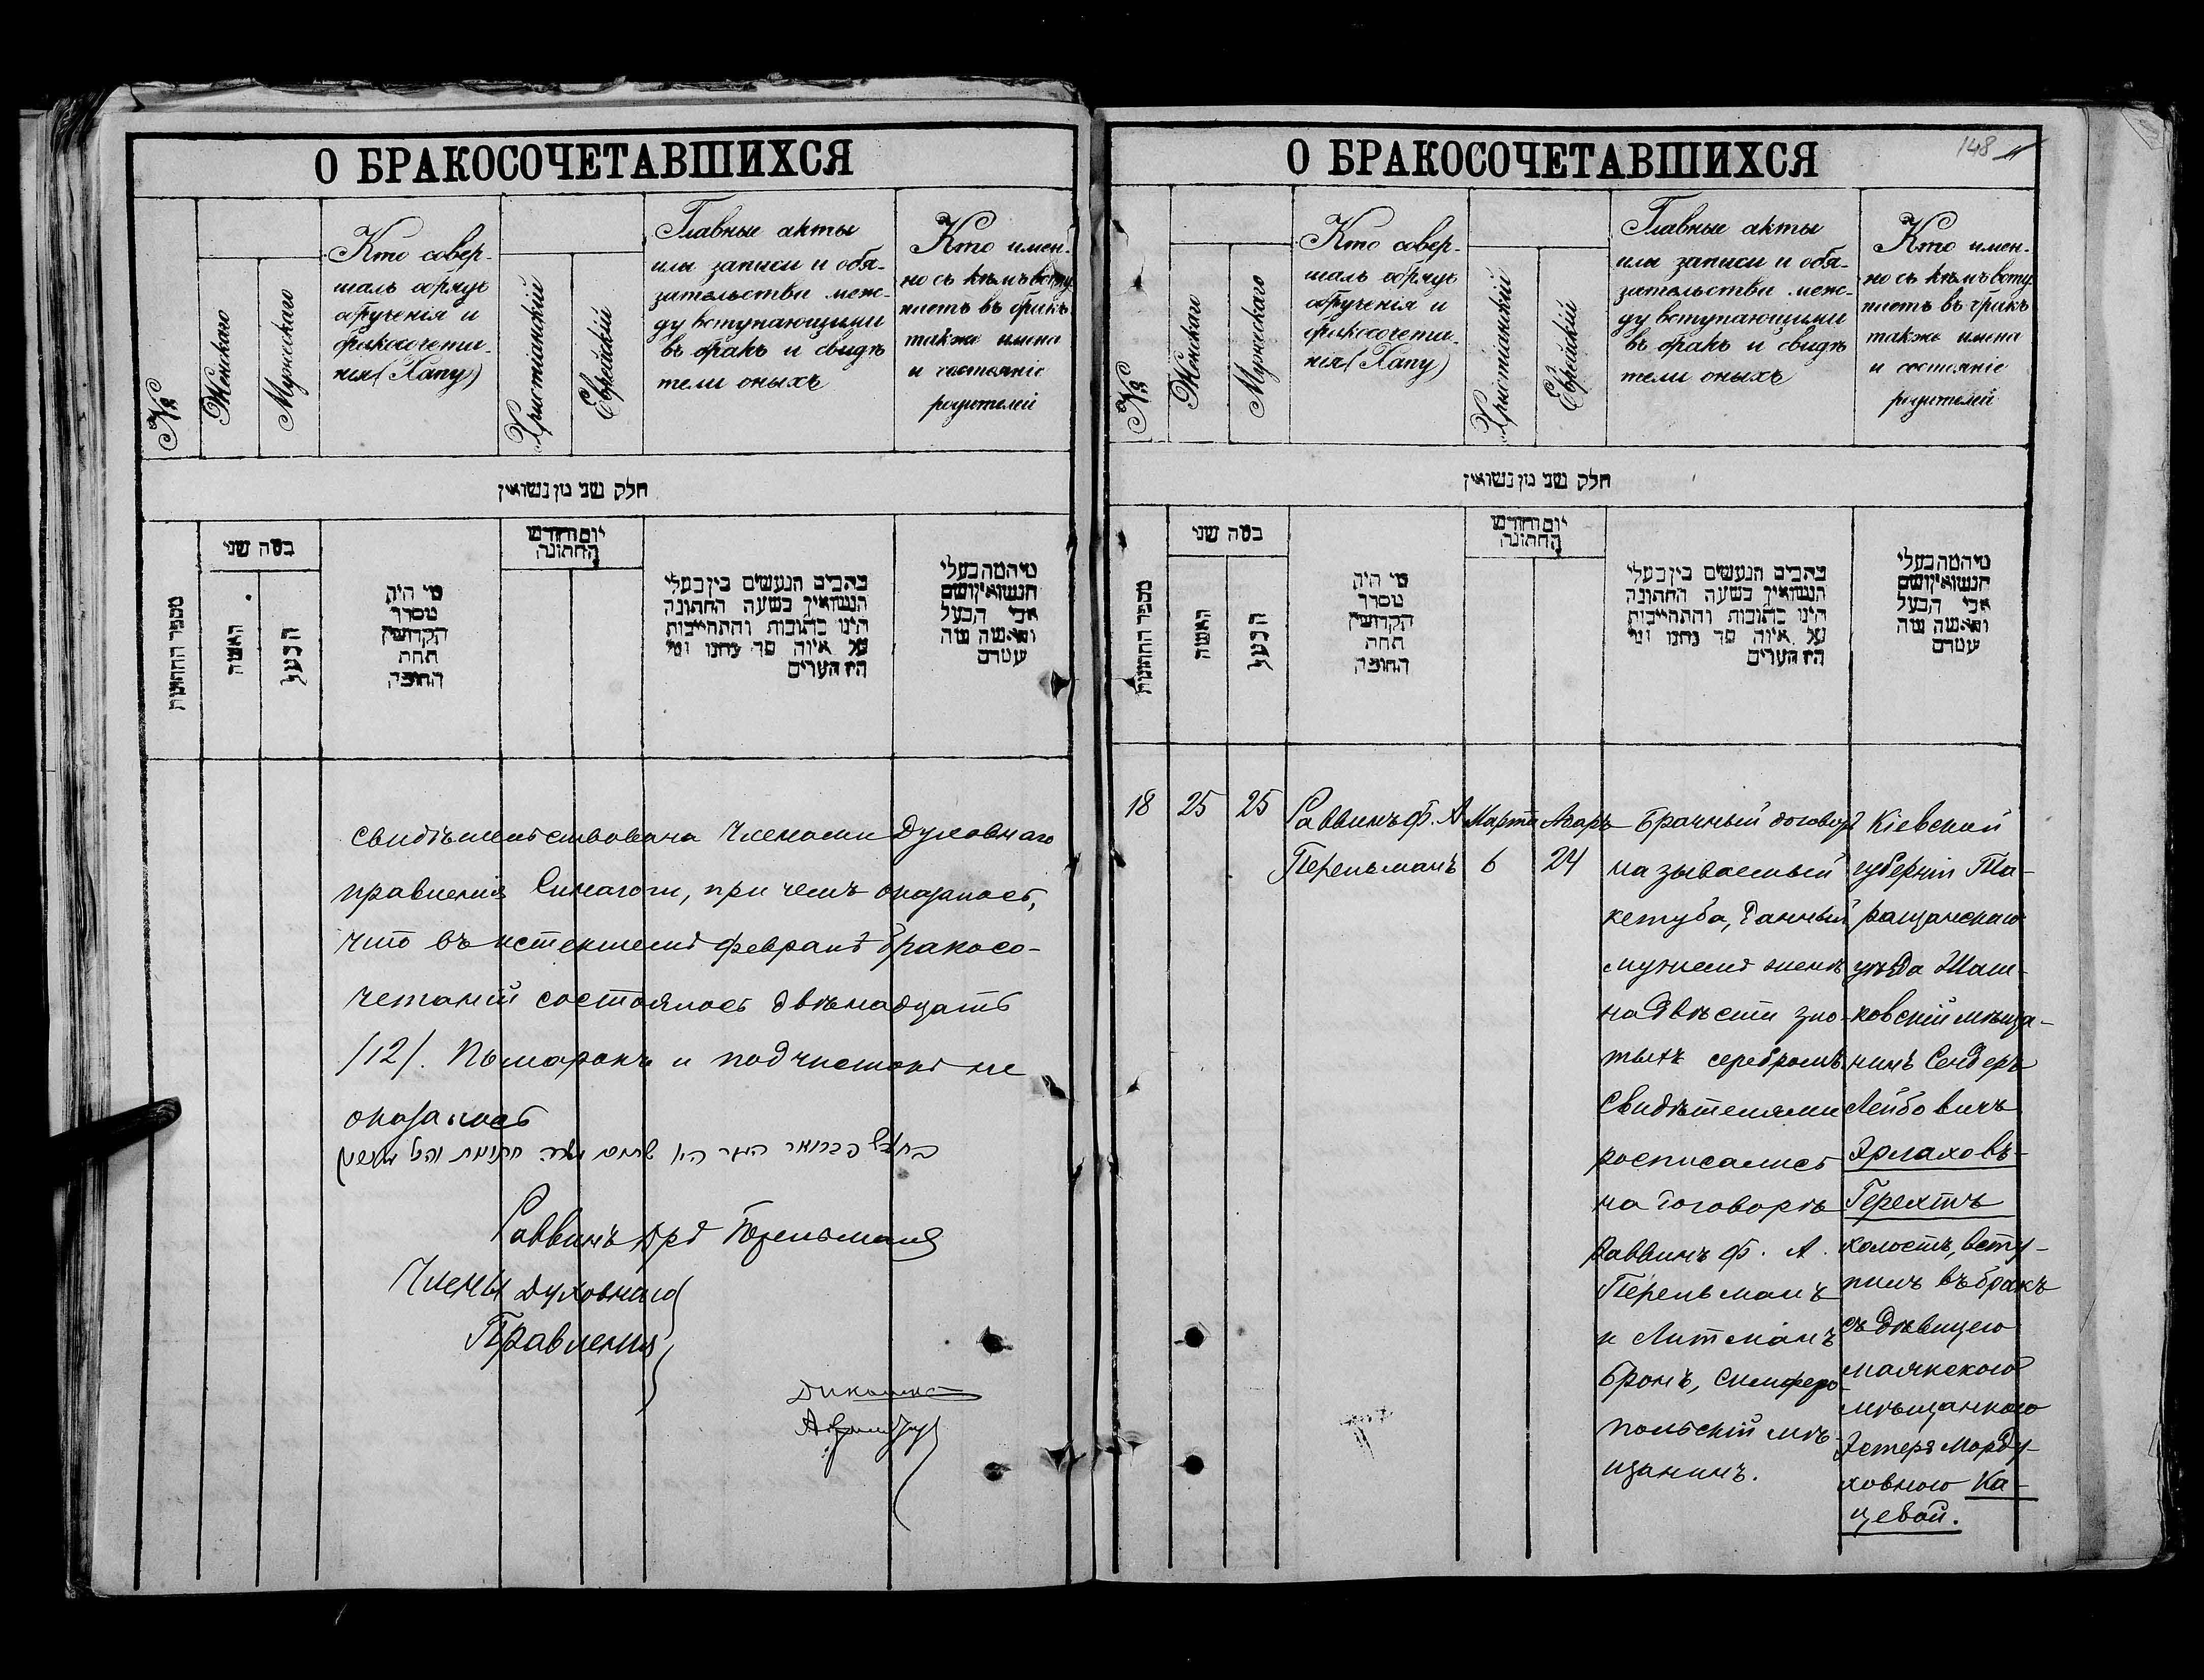 О БРАКОСОЧЕТАВШИХСЯ
№
Женскаго
Мужескаго
Кто совер-
шалъ обрядъ
обрученія и
бракосочета-
нія (Хапу)
Христіанскій
Еврейскій
Главные акты
или записи и обя-
зательства меж-
ду вступающими
въ бракъ и свидѣ
тели оныхъ
Кто имен-
но съ кѣмъ всту
паетъ въ бракъ
также имена
и состояніе
родителей
חלק שני מן נשואין
מספר החתונות
כמה שני
האשה
הבעל
מי היה
מסדר
הקדושין
תחת
החופה
יום וחודש
החתונה
כתבים הנעשים בין בעלי
הנשואין בשעה החתונה
הינו כתובות והתחייבות
על איזה סך נתנו ומי
הם העדים
מי המה בעלי
הנשואין ושם
אבי הבעל
והאשה מה
עמדם
свидѣтельствована членами Духовнаго
правленія Синагоги, при чемъ оказалось,
что въ истекшемъ февралѣ бракосо-
четаній состоялось двѣнадцать
/12/. Помарокъ и подчистокъ не
оказалось
Раввинъ Перельманъ
Члены Духовнаго
Правленія
О БРАКОСОЧЕТАВШИХСЯ
148
№
Женскаго
Мужескаго
Кто совер-
шалъ обрядъ
обрученія и
бракосочета-
нія (Хапу)
Христіанскій
Еврейскій
Главные акты
или записи и обя-
зательства меж-
ду вступающими
въ бракъ и свидѣ
тели оныхъ
Кто имен-
но съ кѣмъ всту
паетъ въ бракъ
также имена
и состояніе
родителей
חלק שני מן נשואין
מספר החתונות
כמה שני
האשה
הבעל
מי היה
מסדר
הקדושין
תחת
החופה
יום וחודש
החתונה
כתבים הנעשים בין בעלי
הנשואין בשעה החתונה
הינו כתובות והתחייבות
על איזה סך נתנו ומי
הם העדים
מי המה בעלי
הנשואין ושם
אבי הבעל
והאשה מה
עמדם
18
25
25
Раввинъ Ф. А
Перельманъ
Марта
6
Адаръ
24
Брачный договор
называемый
кетуба, данный
мужемъ женѣ
на двѣсти зло-
тыхъ серебромъ.
Свидѣтелями
росписались
на договорѣ
Раввинъ Ф. А.
Перельманъ
и Литманъ
Бронъ, симферо-
польскій мѣ-
щанинъ.
Кіевской
губерніи Та-
ращанскаго
уѣзда Жаш-
ковскій мѣща-
нинъ Сендеръ
Лейбовичъ
Ярлаховъ-
Герехтъ
холостъ, всту-
пилъ въ бракъ
съ дѣвицею
маякскою
мѣщанкою
ЭстерѣМорду-
ховною Ка-
цевой.